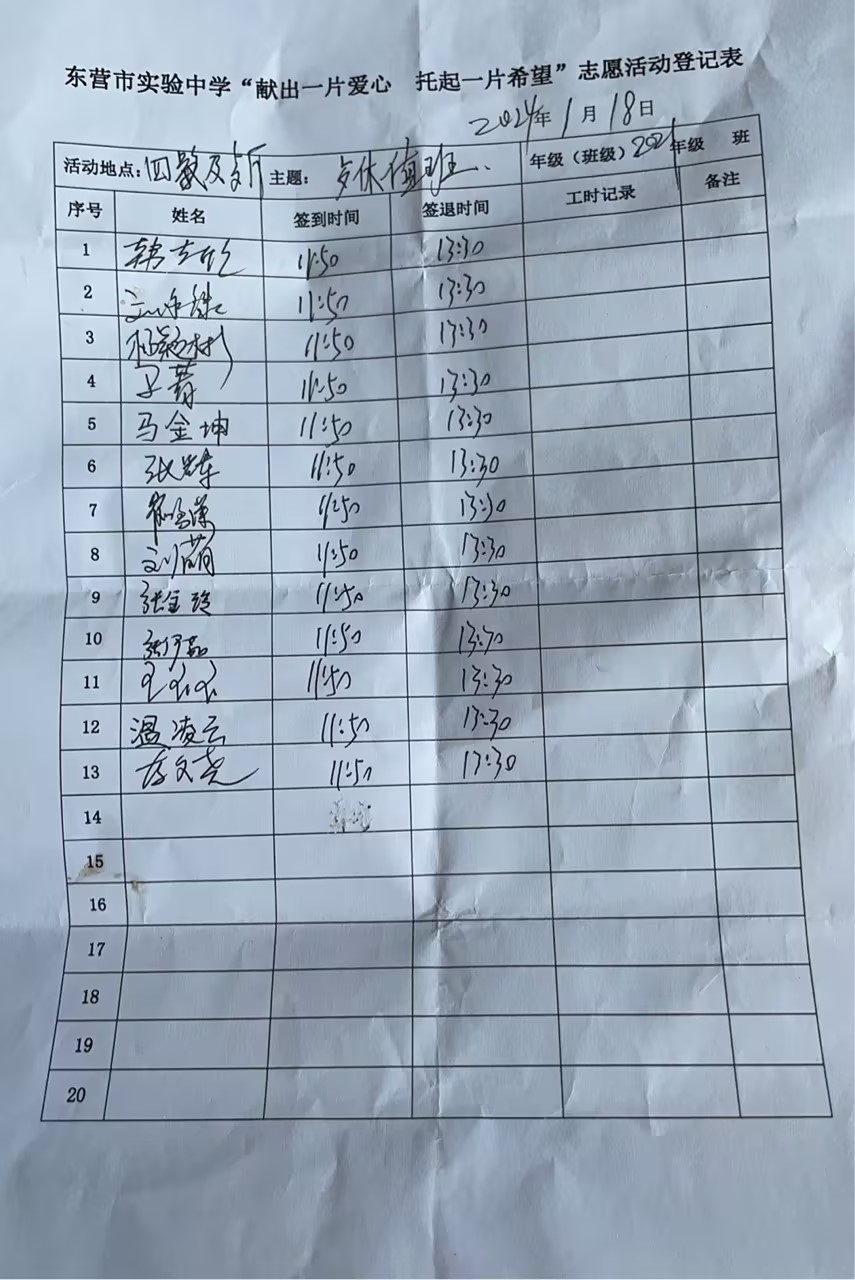 东营市实验中学“献出一片爱心 托起一片希望”志愿活动登记表
2024年1月18日
活动地点: 主题: 午休值班. 年级（班级）2021年级 班
序号 姓名 签到时间 签退时间 工时记录 备注
1 11:50 13:30
2 11:50 13:30
3 11:50 13:30
4 11:50 13:30
5 马金坤 11:50 13:30
6 11:50 13:30
7 11:50 13:30
8 刘萌 11:50 13:30
9 张金玲 11:50 13:30
10 11:50 13:30
11 11:50 13:30
12 温凌云 11:50 13:30
13 11:50 13:30
14
15
16
17
18
19
20